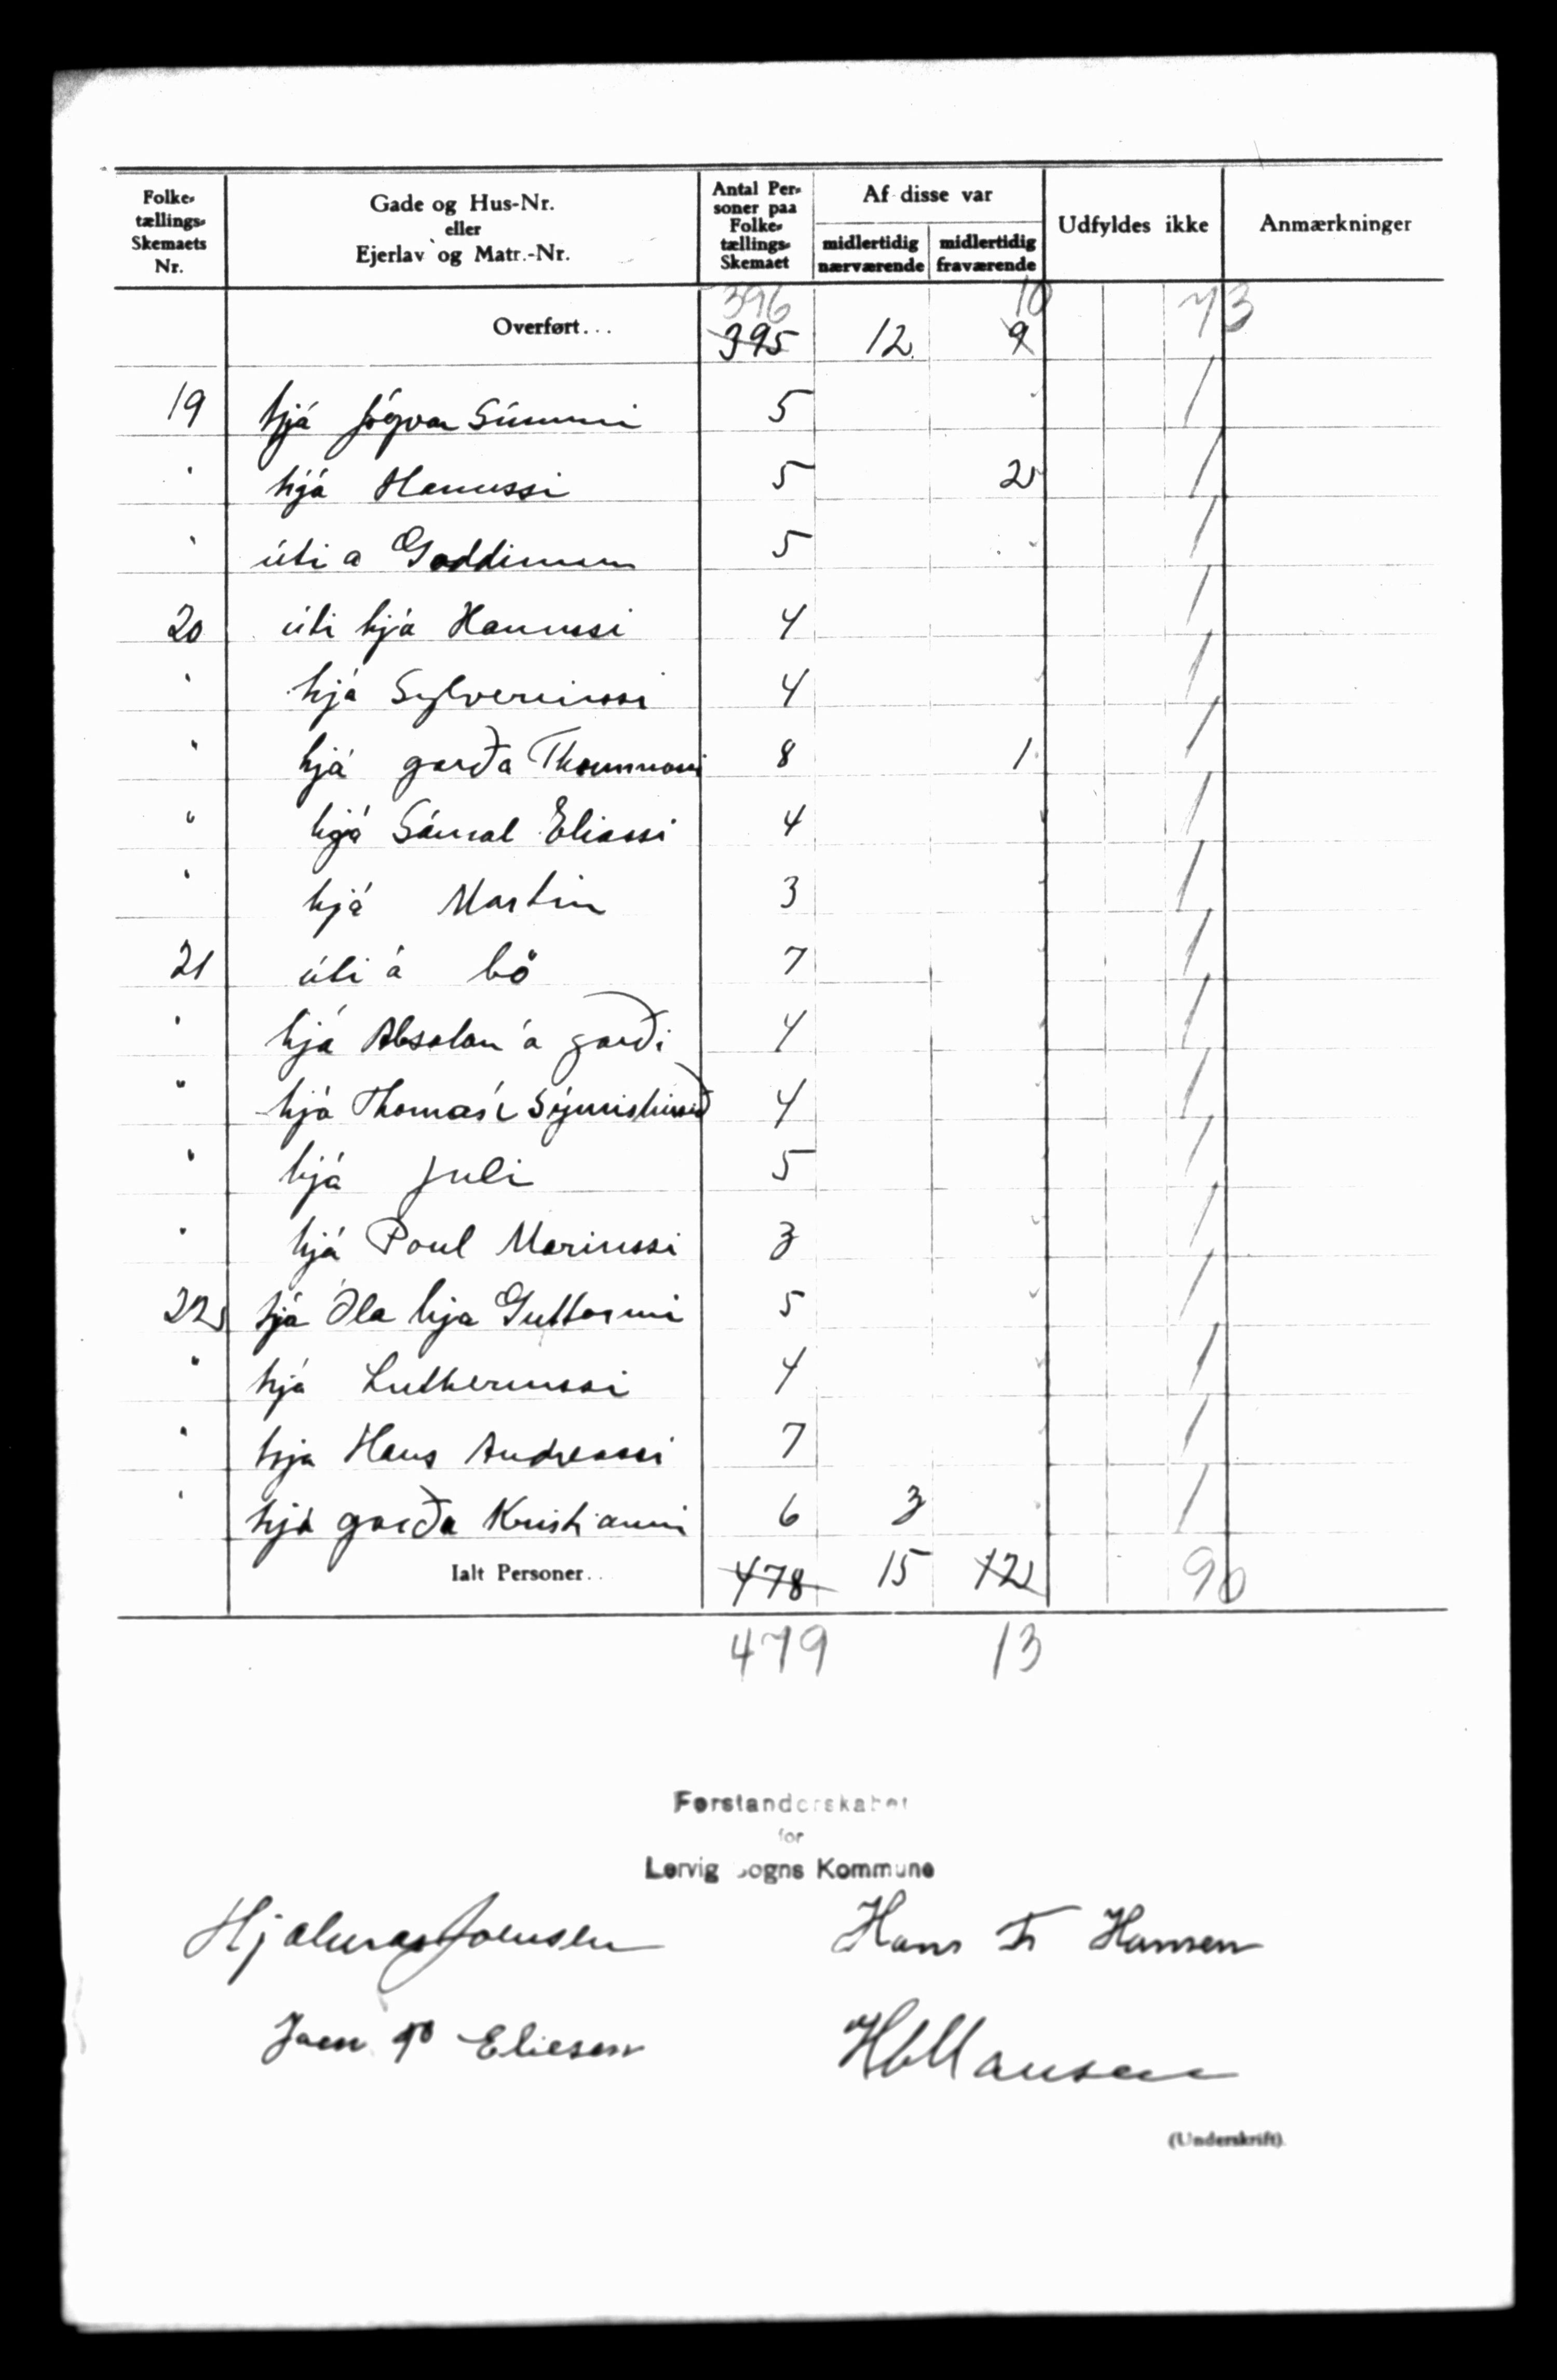 Folke- tællings- Skemaets Nr. | Gade og Hus-Nr. eller Ejerlav og Matr.-Nr. | Antal Per- soner paa Folke- tællings- Skemaet | Af disse var | Udfyldes ikke | Anmærkninger
midlertidig nærværende | midlertidig fraværende
396 10 73
Overført... 395 12 9
19 hjá Jógvan Símuni 5 /
" hjá Hanussi 5 2 /
" úti a Goddinum 5 /
20 úti hjá Hanussi 4 /
" hjá Sylveriussi 4 /
" hjá garða Thommasi 8 1 /
" hjá Sámal Eliassi 4 /
" hjá Martin 3 /
21 úti á bö 7 /
" hjá Absalon á garði 4 /
" hjá Thomas í 4 /
" hjá Juli 5 /
" hjá Poul Mariussi 3 /
22 hjá Óla hja Guttormi 5 /
" hjá Lutherussi 4 /
" hja Hans Andreassi 7 /
" hjá garða Kristianni 6 3 /
Ialt Personer.. 478 15 12 90
479 13
Førstanderskabet
for
Lervig Sogns Kommune
Hjalmar Joensen Hans Fr Hansen
Joen P Eliesen Hansen
(Underskrift).